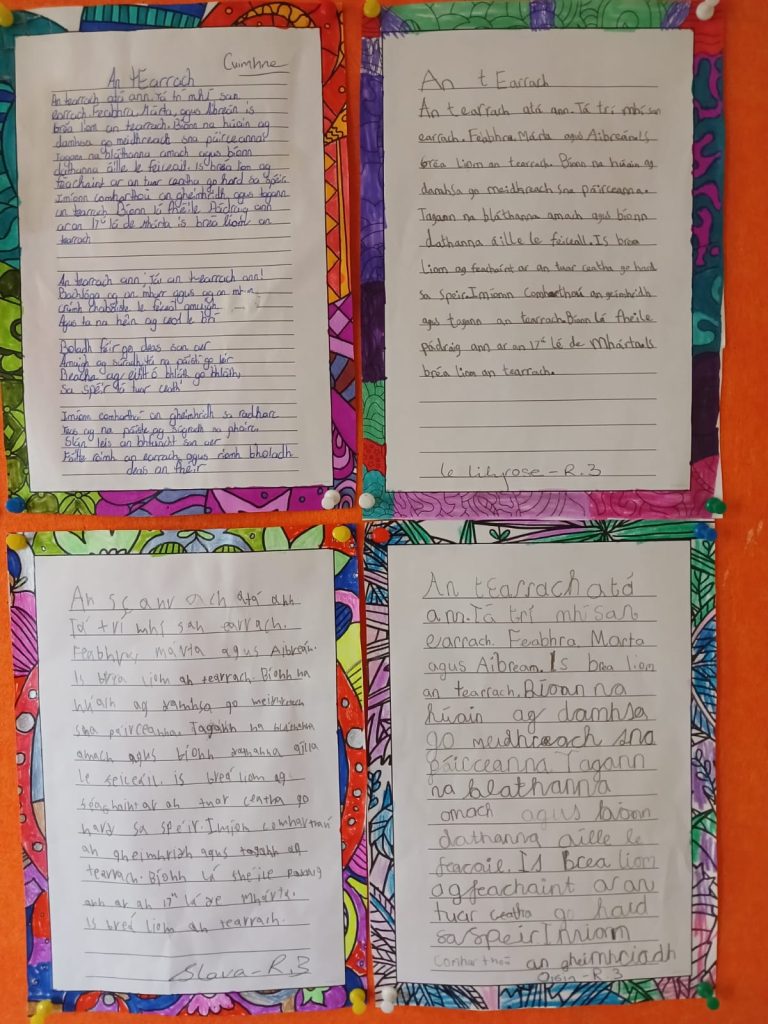 Cuimhne
An tEarrach
An tearrach atá ann. Tá trí mhí san
earrach. Feabhra, Márta, agus Abreán is
bréa liom an tearrach. Bíonn na húain ag
damhsa go meidhreach sna páirceanna.
Tagann na bláthanna amach agus bíonn
dathanna áille le feiceáil. Is bréa liom ag
féachaint ar an tuar ceatha go hard sa spéir.
Imíonn comharthaí an gheimhridh, agus tagann
an tearrach. Bíonn lá Fheile Pádraig ann
ar an 17ú lá de Mhárta is bréa liom an
tearrach
An tearrach ann! Tá an tearrach ann!
Bachlóga ag an mhur agus ag an
le feiceál amuigh
Agus ta na héin ag ceol le brí
Boladh fáir go deas san aer
Amuigh ag súgradh tá na páistí go léir
Beacha ag eitilt ó bhláth go bláth,
sa spéir tá tuar ceath
Imíonn comharthaí an gheimhridh sa radharc
ag na páiste ag súgradh na pháirc.
Slán leis an bhfuacht san aer
Fáilte roimh an earrach agus roimh bholadh
deas an fhéir
An t Earrach
An tearrach atá ann. Tá trí mhí san
earrach. Feabhra, Márta agus Aibreán. Is
bréa liom an tearrach. Bíonn na húain ag
damhsa go meidhreach sna páirceanna.
Tagann na bláthanna amach agus bíonn
dathanna áille le feiceáll. Is brea
liom ag feachaint ar an tuar ceatha go hard
sa speir. Imíonn Comharthaí an geimhridh
agus tagann an tearrach. Bíonn Lá Fheile
pádraig ann ar an 17ú lá de Mhárta. Is
bréa liom an tearrach.
le Lilyrose - R.3
An atá ann
Tá trí mhí san earrach.
Feabhra, márta agus Aibreán.
Is bréa liom an tearrach. Bíonn na
húain ag damhsa go meidhreach
sna páirceanna. Tagann na bláthanna
amach agus bíonn dathanna ailla
le feiceáil. is breá liom ag
féachaint ar an tuar ceatha go
hard sa speir. Imíon comharthaí
an gheimhridh agus tagann an
tearrach. Bíonn lá fheile Pádraig
ann ar an 17ú lá de Mhárta.
Is breá liom an tearrach.
Slava - R.3
An tEarrach atá
ann. Tá trí mhí san
earrach. Feabhra, Marta
agus Aibrean. Is brea liom
an tearrach. Bíonn na
húain ag damhsa
go meidhreach sna
páirceanna Tagann
na blathanna
amach agus bionn
dathanna aille le
feacail. Is brea liom
ag feachaint ar an
tuar ceatha go hard
sa speir Imiom
comharthaí an gheimhriadh
Oisin - R.3